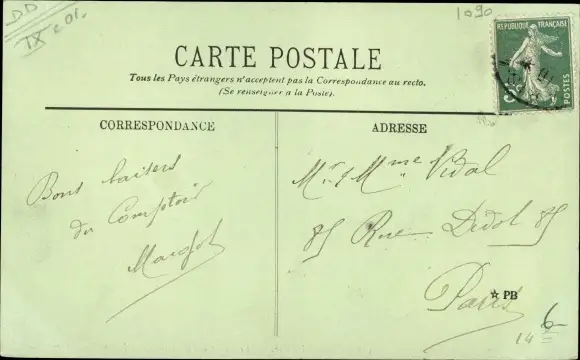 DD
IX e 01.
1090
RÉPUBLIQUE FRANÇAISE
POSTES
CARTE POSTALE
Tous les Pays étrangers n'acceptent pas la Correspondance au recto.
(Se renseigner à la Poste).
CORRESPONDANCE
Bons baisers
du Comptoir
Margot
ADRESSE
Mr & Mme Vidal
85 Rue Didot 85
Paris
☆ PB
6
14